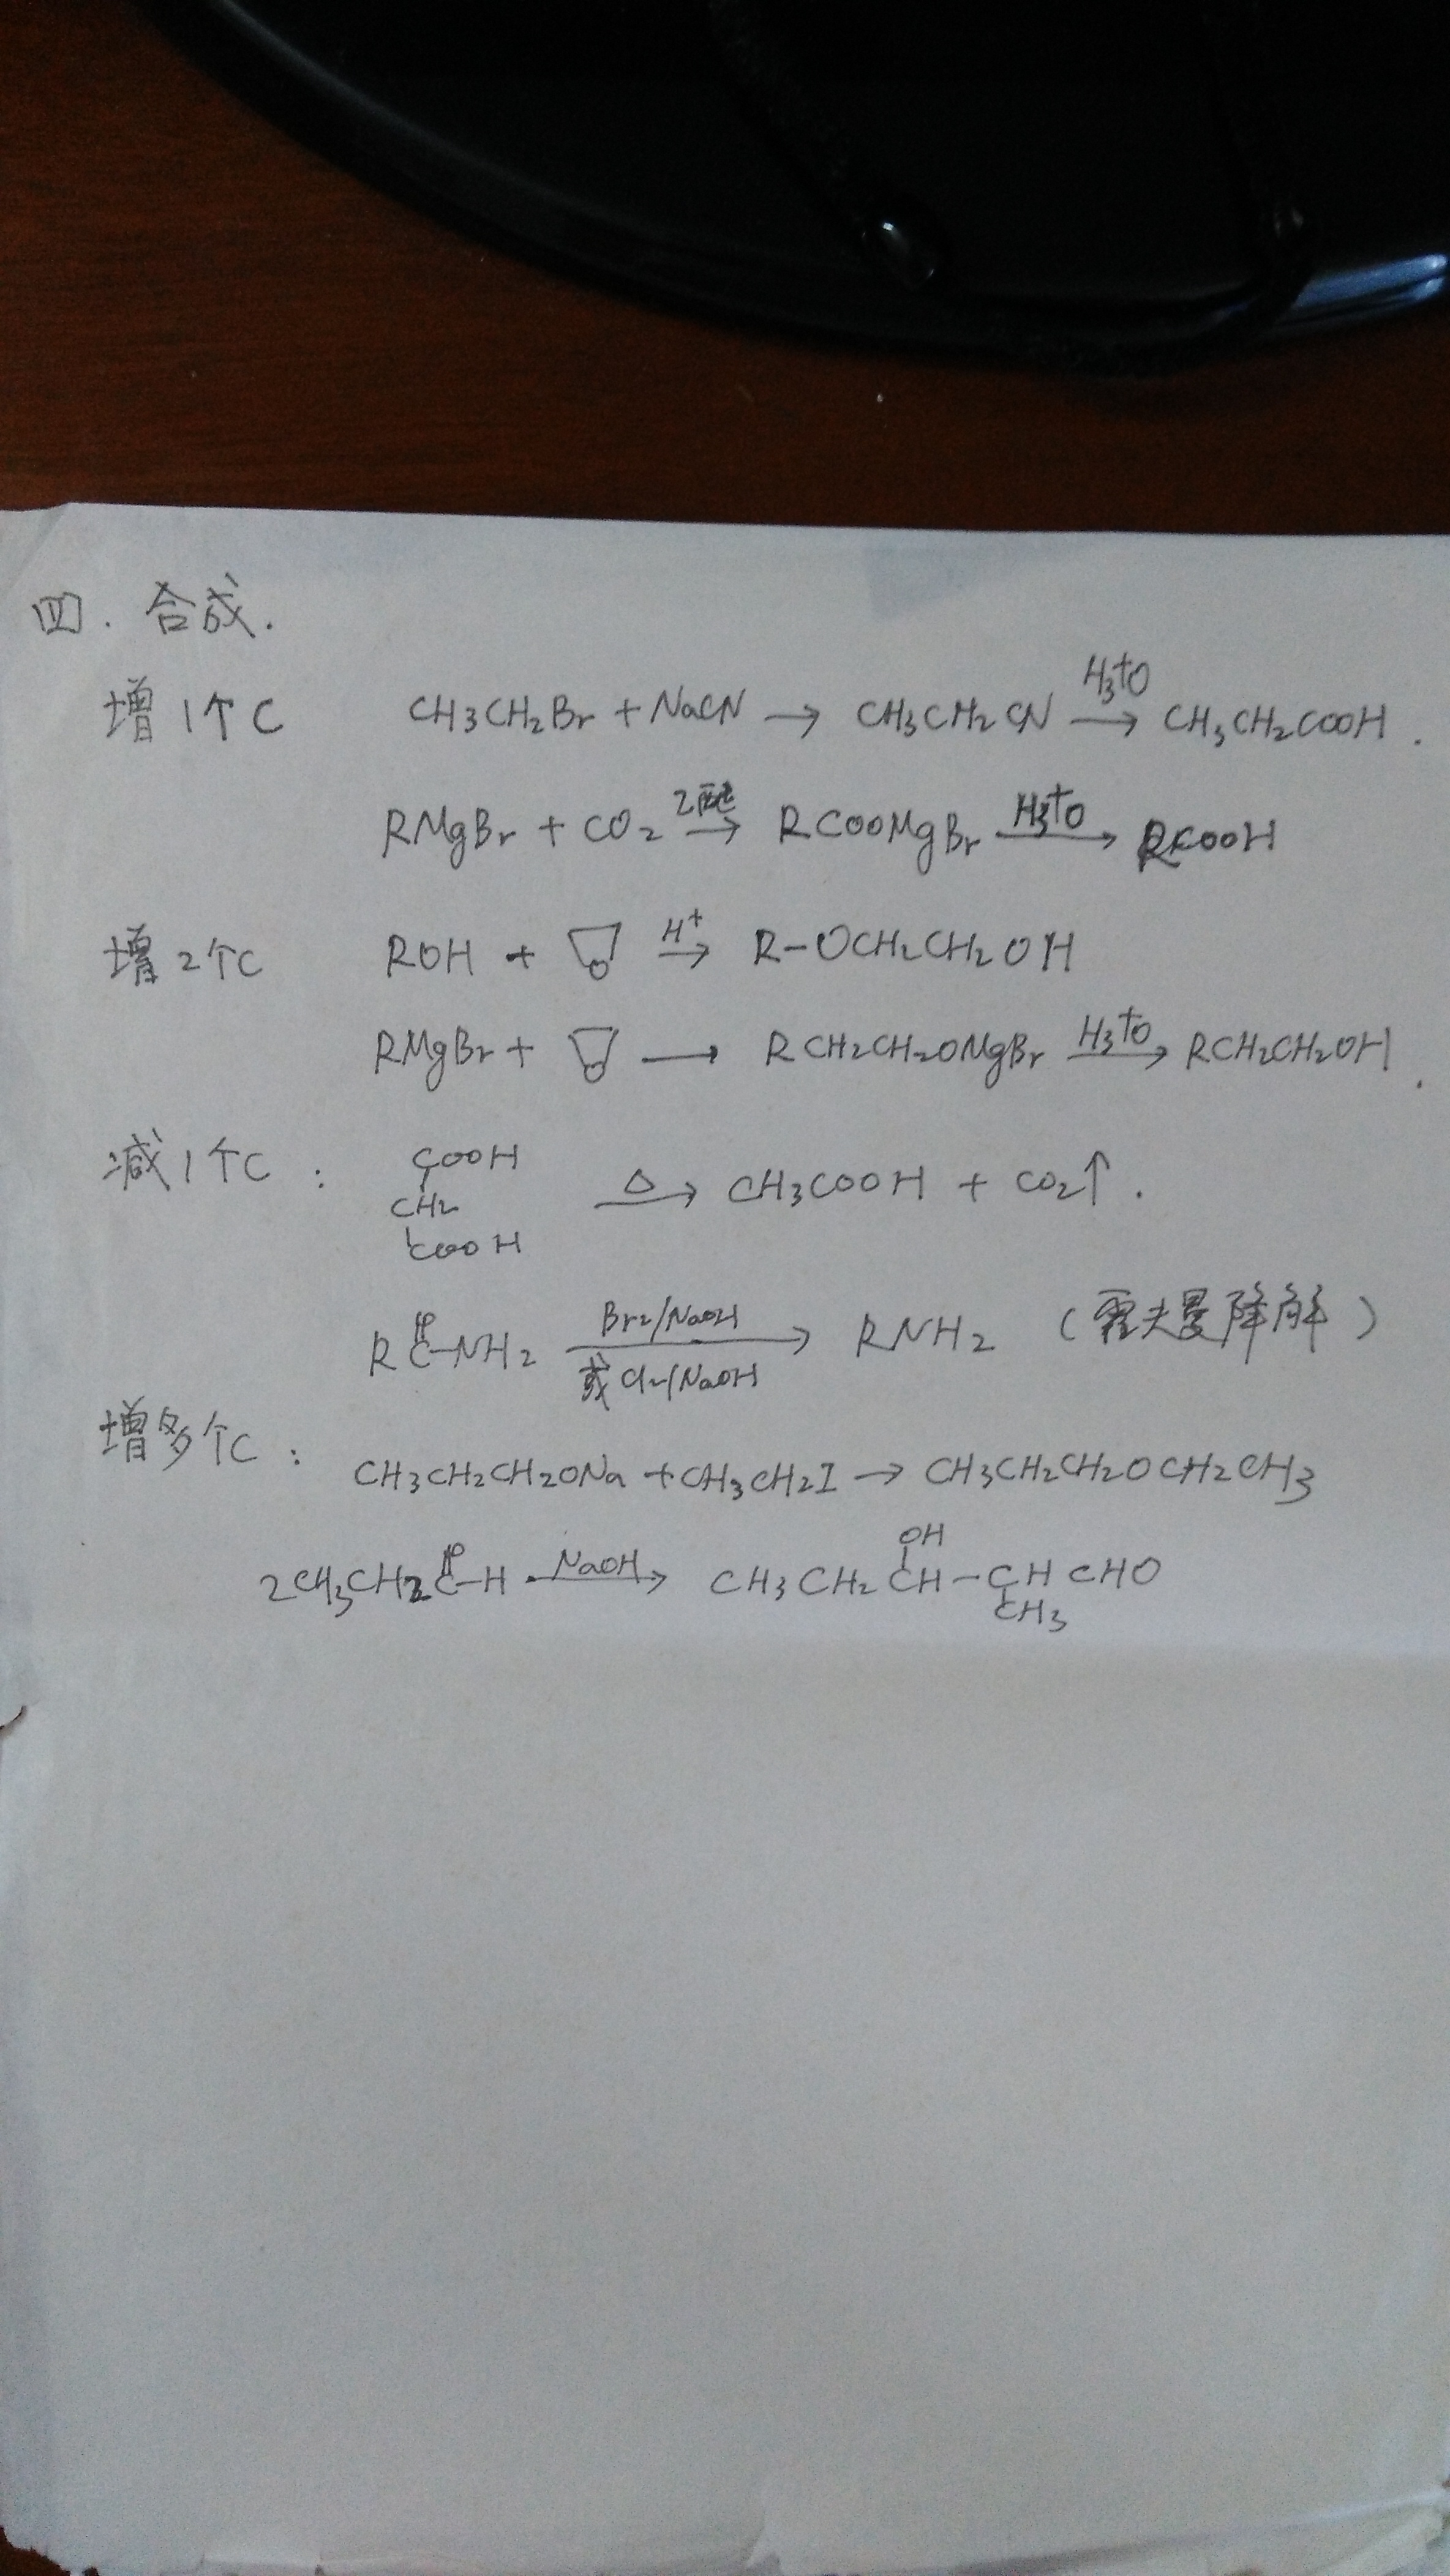 四. 合成.
增1个C CH3CH2Br + NaCN → CH3CH2CN H3+O → CH3CH2COOH.
RMgBr + CO2 乙醚 → RCOOMgBr H3+O → RCOOH
增2个C ROH + O H+ → R-OCH2CH2OH
RMgBr + O → RCH2CH2OMgBr H3+O → RCH2CH2OH.
减1个C: COOH
CH2 △ → CH3COOH + CO2↑.
COOH
O
RC-NH2 Br2/NaOH 或Cl2/NaOH → RNH2 (霍夫曼降解)
增多个C: CH3CH2CH2ONa + CH3CH2I → CH3CH2CH2OCH2CH3
O OH
2CH3CH2C-H NaOH → CH3CH2CH-CHCHO
CH3